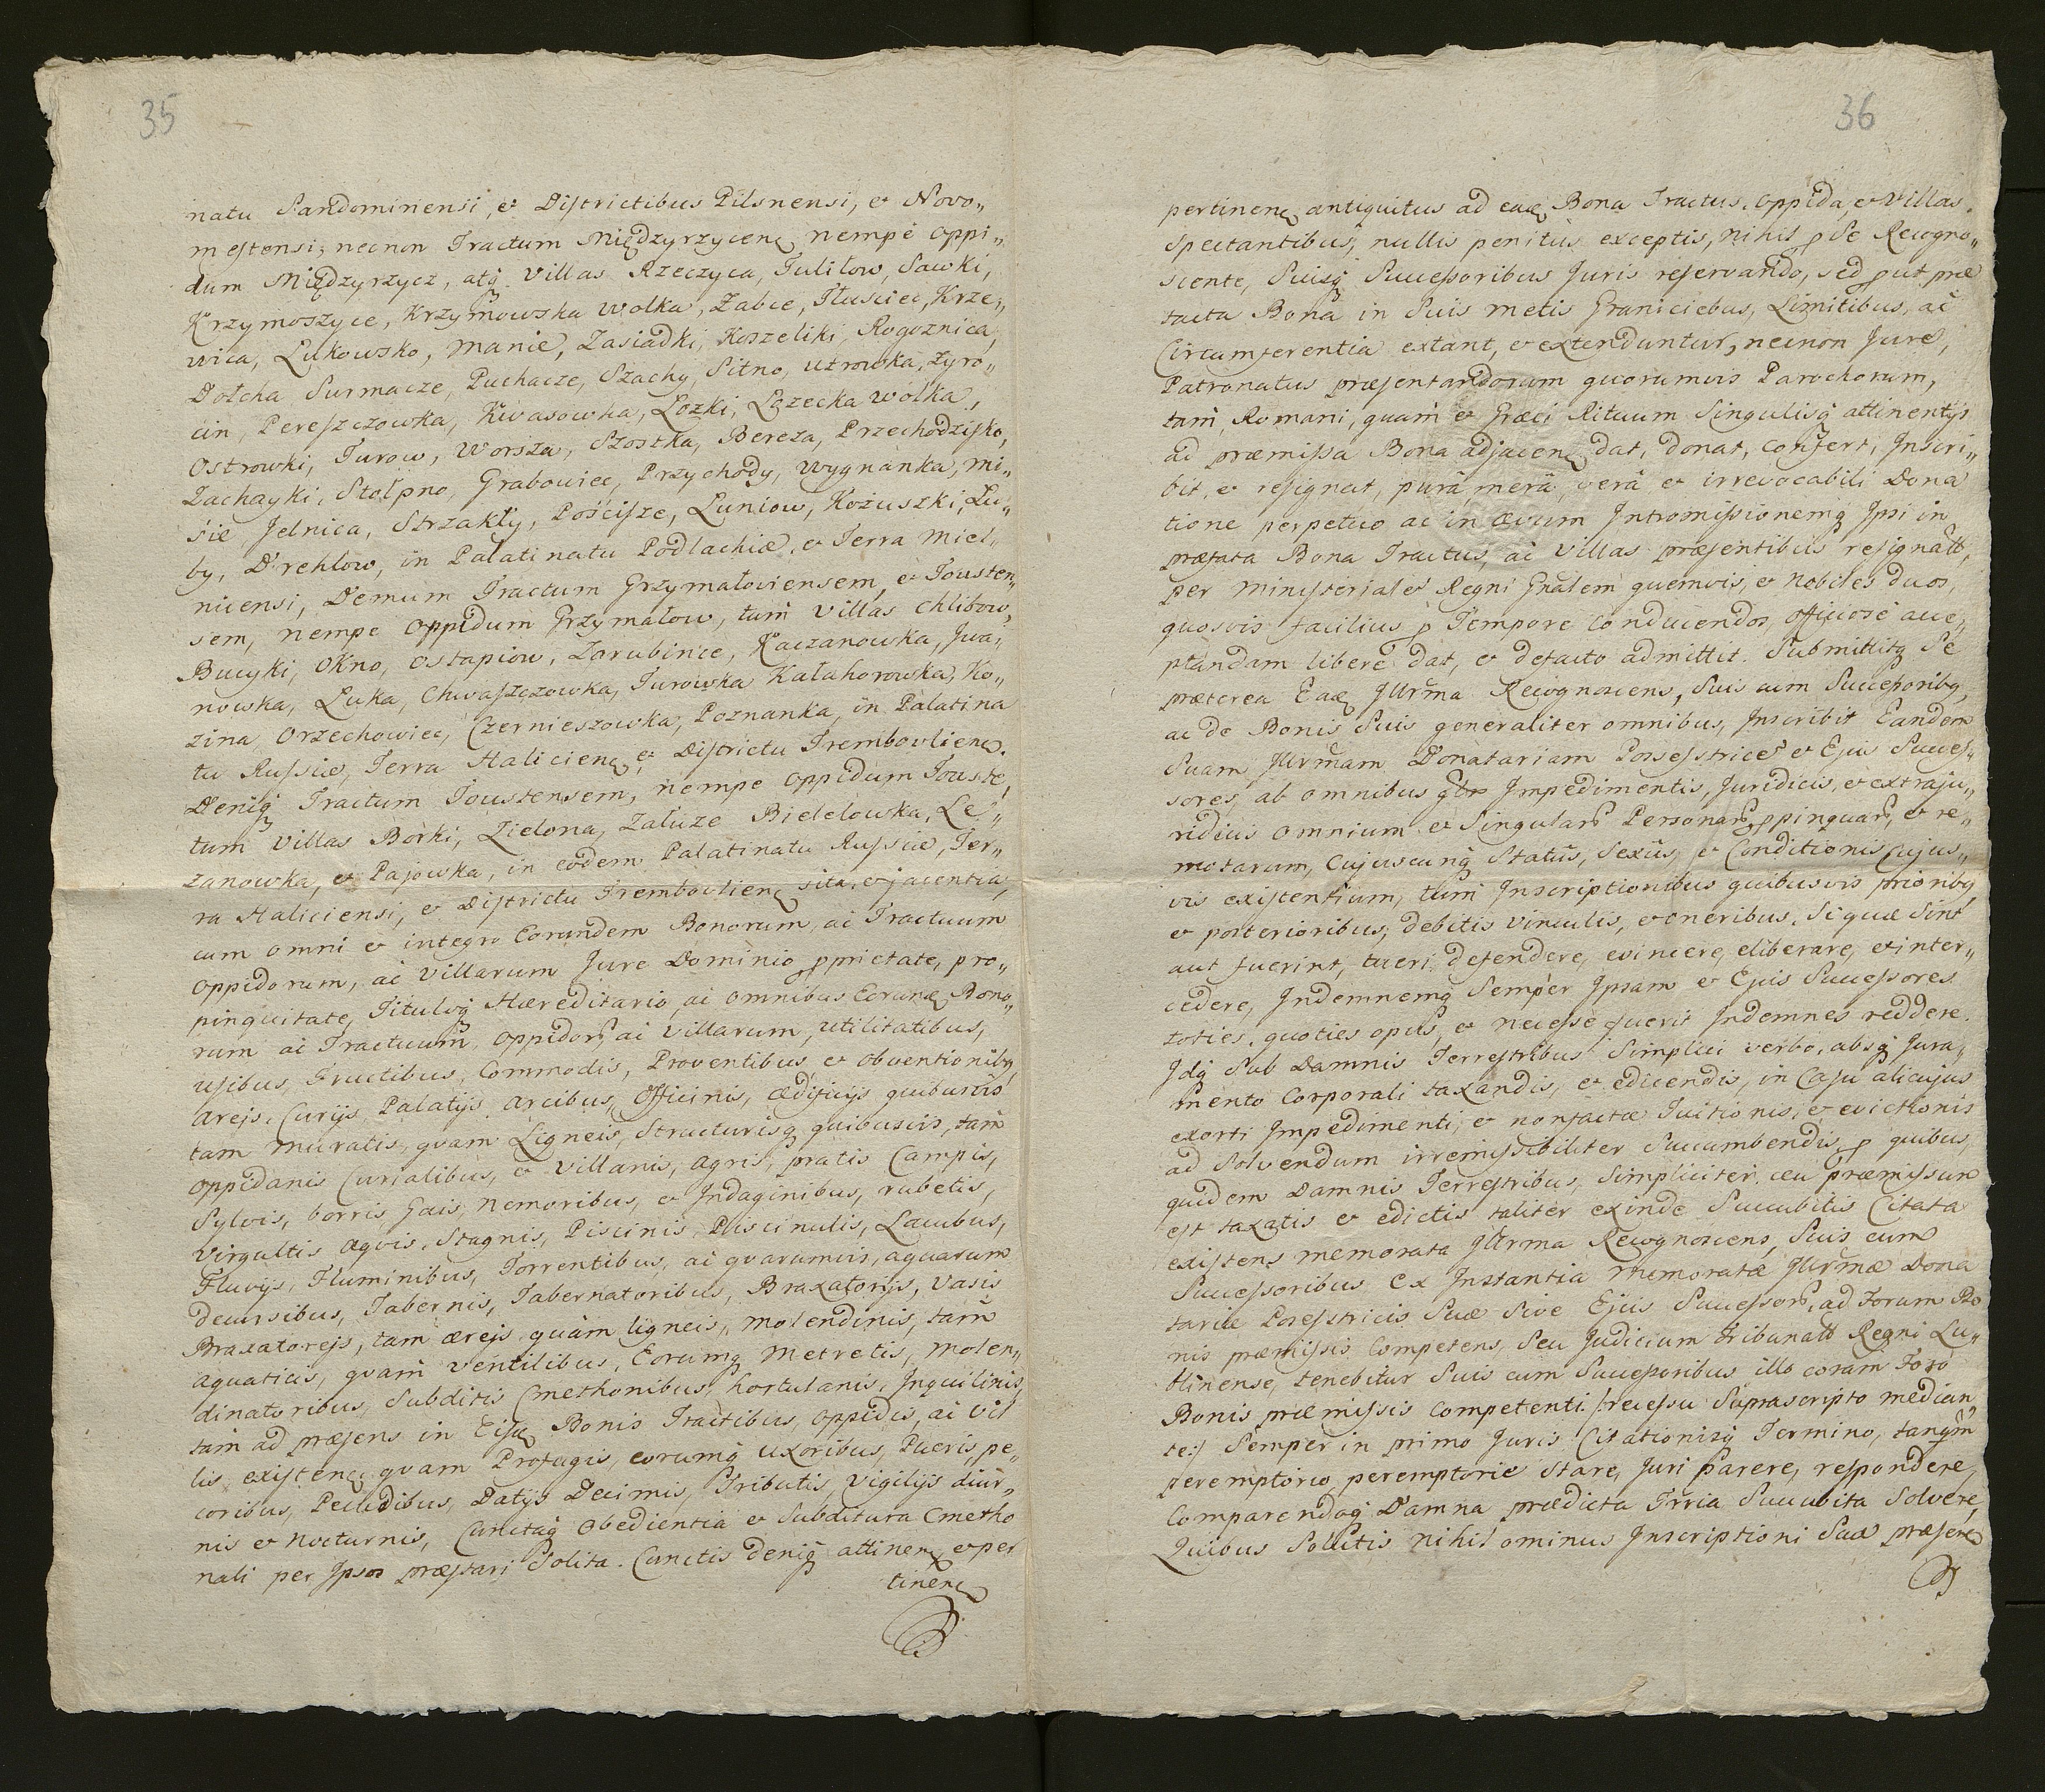 35
natu Sandominensi, et Districtibus Pilsnensi, et Novo„
mestensi; necnon Tractum Międzyrzycenȩ nempè oppi„
dum Międzyrzycz, atq̃ Villas Rzeczyca, Tuliłow, Sawki,
Krzymoszyce, Krzymowska Wolka, Zabce, Tłusciec, Krze„
wica, Łukowsko, Manie, Zasiadki, Koszeliki, Rogoznica,
Dołcha Surmacze, Puchacze, Szachy, Sitno, Utrowka, Zyro„
cin, Pereszczowka, Kwasowka, Łozki, Łęzecka wolka,
Ostrowki, Turow, Worsza, Szostka, Bereza, Przechodzisko,
Zachayki, Stołpno, Grabowiec, Przychody, Wygnanka, Mi„
sie, Jelnica, Strzakły, Pościsze, Luniow, Kożuszki, Lu„
by, Drehlow, in Palatinatu Podlachiæ, et Terra Miel„
nicensi, Demum Tractum Grzymałoviensem, et Tousten„
sem, nempe oppidum Grzymałow, tum Villas Chlibow,
Bucyki, Okno, Ostapiow, Zarubince, Kaczanowka, Iwa„
nowka, Łuka, Chwaszczowka, Turowka Kałahorowka, Ko„
zina, Orzechowiec, Czernieszowka, Poznanka, in Palatina
tu Russiæ, Terra Halicienȩ et Districtu Trembovlienȩ.
Deniq̃ Tractum Toustensem, nempe oppidum Touste,
tum Villas Borki, Zielona, Załuze Bielelowka, Le„
zanowka, et Pajowka, in eodem Palatinatu Russiæ, Ter„
ra Haliciensi, et Districtu Trembovlienȩ sita, et jacentia,
cum omni et integro Eorundem Bonorum, ac Tractuum
oppidorum, ac Villarum Jure Dominio ꝓprietate, pro„
pinquitate, Tituloq̃ Hæreditario, ac omnibus Eorunȩ Bono„
rum ac Tractuum, oppidorȩ, ac Villarum, utilitatibus,
usibus, Fructibus, Commodis, Proventibus et obventionibȩ,
Areis, Curijs, Palatijs, Arcibus, Officinis, Ædificijs quibusvis
tam muratis, quam Ligneis, Structurisq̃ quibusvis, tam
oppidanis Curialibus, et Villanis, Agris, pratis Campis,
Sylvis, borris, Gais, Nemoribus, et Indaginibus, rubetis,
Virgultis Aquis, Stagnis, Piscinis, Piscinulis, Lacubus,
Fluvijs, Fluminibus, Torrentibus, ac quarumvis, aquarum
decursibus, Tabernis, Tabernatoribus, Braxatorijs, Vasis
Braxatoreis, tam æreis quàm ligneis, molendinis, tam
aquaticis, quam ventilibus, Eorumq̃ Metretis, Molen„
dinatoribus, Subditis Cmethonibus, hortulanis, Inquilinis
tam ad præsens in Eisȩ Bonis Tractibus, oppidis, ac Vil
lis existenȩ quam Profugis, eorumq̃ uxoribus, Pueris, pe„
coribus, Pecudibus, Datijs Decimis, Tributis, Vigilijs diur„
nis et Nocturnis, Cunctaq̃ obedientia et Subditura Cmetho
nali per Ipsos præstari Solita. Cunctis deniq̃ attinenȩ et per
tinenȩ
36
pertinenȩ antiquitus ad eaȩ Bona Tractus, oppida, et Villas
Spectantibus, nullis penitus exceptis, nihil ꝓ Se Recogno„
scente, Suisq̃ Successoribus Juris reservando, sed ꝓut præ
facta Bona in Suis metis Graniciebus, Limitibus, ac
Circumferentia extant, et extenduntur, necnon Jure,
Patronatus præsentandorum quorumvis Parochorum,
tam Romani, quam et Græci Rituum Singulisq̃ attinentijs
ad præmissa Bona adjacenȩ dat, donat, confert, Inscri„
bit, et resignat, purâ merâ, verâ et irrevocabili Dona
tione perpetuo ac in ævum Intromissionemq̃ Ipsi in
præfata Bona Tractus, ac Villas præsentibus resignatt,
per Ministerialet Regni Gnalem quemvis, et Nobiles duos,
quosvis facilius ꝓ Tempore conducendos, officiose acce„
ptandam liberè dat, et defacto admittit. Submittitq̃ Se
præterea Eaȩ Jllrma Recognoscens, Suis cum Successoribȩ,
ac de Bonis Suis generaliter omnibus, Inscribit Eandem
Suam Jllrmam Donatariam Possestricẽ et Ejus Succes„
sores, ab omnibus qbs Impedimentis, Juridicis, et extraju„
ridicis omnium et Singularȩ Personarȩ, ꝓpinquarȩ, et re„
motarum, cujuscunq̃ Statûs, Sexûs, et Conditionis cujus„
vis existentium, tum Inscriptionibus quibusvis prioribȩ
et posterioribus, debitis vinculis, et oneribus, Si quæ Sint
aut fuerint, tueri, defendere, evincere, eliberare, et inter„
cedere, Indemnemq̃ Semper Ipsam et Ejus Successores
toties, quoties opus, et necesse fuerit Indemnes reddere.
Idq̃ Sub Damnis Terrestribus Simplici verbo, absq̃ Jura„
mento Corporali taxandis, et edicendis, in Casu alicujus
exorti Impedimenti, et nonfactæ Tuitionis, et evictionis
ad Solvendum irremissibiliter Succumbendis, ꝓ quibus,
quidem Damnis Terrestribus, Simpliciter, ceu præmissum
est taxatis et edictis taliter exinde Succubitis Citata
existens memorata Jllrma Recognoscens, Suis cum
Successoribus ex Instantia memoratæ Jllrmæ Dona
tariæ Possestricis Suæ Sive Ejus Successorȩ, ad Forum Bo
nis præmissis Competens, Seu Judicium tribunalt Regni Lu„
blinense, tenebitur Suis cum Successoribus illo coram Foro
Bonis præmissis Competenti /: recessu Suprascripto median„
te :/ Semper in primo Juris Citationisq̃ Termino, tanqm
peremptorio, peremptorie Stare, Juri Parere, respondere,
Comparendoq̃ Damna prædicta Trria Succubita Solvere,
Quibus Solutis nihil ominus Inscriptioni Suæ præsenȩ